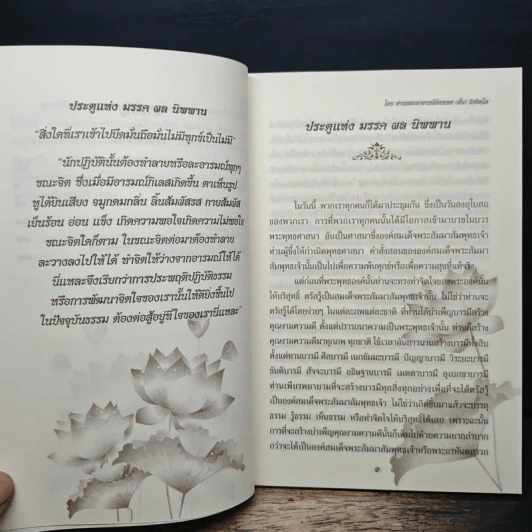 ประตูแห่ง มรรค ผล นิพพาน
"สิ่งใดที่เราเข้าไปยึดมั่นถือมั่นไม่มีทุกข์เป็นไม่มี"
"นักปฏิบัตินั้นต้องทำลายหรือละอารมณ์ทุกๆ
ขณะจิต ซึ่งเมื่อมีอารมณ์กิเลสเกิดขึ้น ตาเห็นรูป
หูได้ยินเสียง จมูกดมกลิ่น ลิ้นสัมผัสรส กายสัมผัส
เย็นร้อน อ่อน แข็ง เกิดความพอใจเกิดความไม่พอใจ
ขณะจิตใดก็ตาม ในขณะจิตต่อมาต้องทำลาย
ละวางลงไปให้ได้ ทำจิตให้ว่างจากอารมณ์ให้ได้
นี่แหละจึงเรียกว่าการประพฤติปฏิบัติธรรม
หรือการพัฒนาจิตใจของเรานั้นให้ดียิ่งขึ้นไป
ในปัจจุบันธรรม ต้องต่อสู้อยู่ที่ใจของเรานี่แหละ"
โดย ท่านพระอาจารย์
ประตูแห่ง มรรค ผล นิพพาน
ในวันนี้ พวกเราทุกคนก็ได้มาประชุมกัน ซึ่งเป็นวันลงอุโบสถ
ของพวกเรา การที่พวกเราทุกคนนั้นได้มีโอกาสเข้ามาบวชในบวร
พระพุทธศาสนา อันเป็นศาสนาซึ่งองค์สมเด็จพระสัมมาสัมพุทธเจ้า
ท่านผู้ซึ่งให้กำเนิดพุทธศาสนา คำสั่งสอนขององค์สมเด็จพระสัมมา
สัมพุทธเจ้านั้นเป็นไปเพื่อความพ้นทุกข์หรือเพื่อความสุขที่แท้จริง
แต่ก่อนที่พระพุทธองค์นั้นท่านจะทรงทำจิตใจของพระองค์นั้น
ให้บริสุทธิ์ ตรัสรู้เป็นองค์สมเด็จพระสัมมาสัมพุทธเจ้านั้น ไม่ใช่ว่าท่านจะ
ตรัสรู้ได้โดยง่ายๆ ในแต่ละภพแต่ละชาติ ที่ท่านได้บำเพ็ญบารมีสร้าง
คุณงามความดี ตั้งแต่ปรารถนาความเป็นพระพุทธเจ้านั้น ท่านก็สร้าง
คุณงามความดีมาทุกภพ ทุกชาติ ใช้เวลาอันยาวนานสร้างบารมีทั้งสิบ
ตั้งแต่ทานบารมี ศีลบารมี เนกขัมมะบารมี ปัญญาบารมี วิริยะบารมี
ขันติบารมี สัจจะบารมี อธิษฐานบารมี เมตตาบารมี อุเบกขาบารมี
ท่านเพียรพยายามที่จะสร้างบารมีทุกสิ่งทุกอย่างเพื่อที่จะได้ตรัสรู้
เป็นองค์สมเด็จพระสัมมาสัมพุทธเจ้า ไม่ใช่ว่าเกิดขึ้นมาแล้วจะบรรลุ
ธรรม รู้ธรรม เห็นธรรม หรือทำจิตใจให้บริสุทธิ์ได้เลย เพราะฉะนั้น
การที่จะสร้างบำเพ็ญคุณงามความดีนั้นก็เต็มไปด้วยความยากลำบาก
กว่าจะได้เป็นองค์สมเด็จพระสัมมาสัมพุทธเจ้าหรือพระอรหันตสาวก